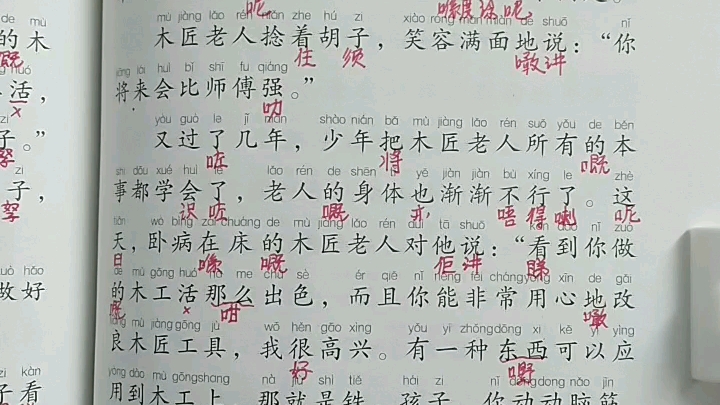 呢 喉度途呢
mù jiàng lǎo rén niǎn zhe hú zi xiào róng mǎn miàn de shuō nǐ
的木 木匠老人捻着胡子，笑容满面地说：“你
嘅 住 须 噉讲
jiāng lái huì bǐ shī fu qiáng
活， 将来会比师傅强。”
x 叻
yòu guò le jǐ nián shào nián bǎ mù jiàng lǎo rén suǒ yǒu de běn
子。” 又过了几年，少年把木匠老人所有的本
咗 将 嘅
shì dōu xué huì le lǎo rén de shēn tǐ yě jiàn jiàn bù xíng le zhè
子， 事都学会了，老人的身体也渐渐不行了。这
识咗 嘅 亦 唔得喇 呢
tiān wò bìng zài chuáng de mù jiàng lǎo rén duì tā shuō kàn dào nǐ zuò
天，卧病在床的木匠老人对他说：“看到你做
日 喺 嘅 佢讲 睇
de mù gōng huó nà me chū sè ér qiě nǐ néng fēi cháng yòng xīn de gǎi
故好 的木工活那么出色，而且你能非常用心地改
嘅 x 咁 噉
liáng mù jiàng gōng jù wǒ hěn gāo xìng yǒu yì zhǒng dōng xi kě yǐ yìng
良木匠工具，我很高兴。有一种东西可以应
好 嘢
yòng dào mù gōng shang nà jiù shì tiě hái zi nǐ dòng dong nǎo jīn
子看 用到木工上，那就是铁。孩子，你动动脑筋